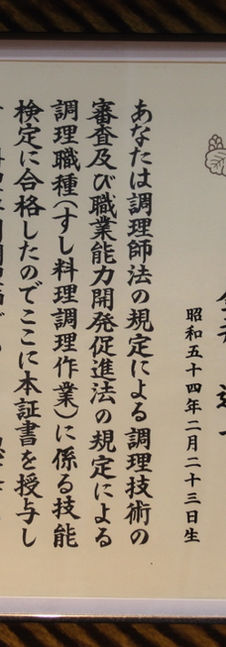 昭和五十四年二月二十三日生
あなたは調理師法の規定による調理技術の
審査及び職業能力開発促進法の規定による
調理職種(すし料理調理作業)に係る技能
検定に合格したのでここに本証書を授与し